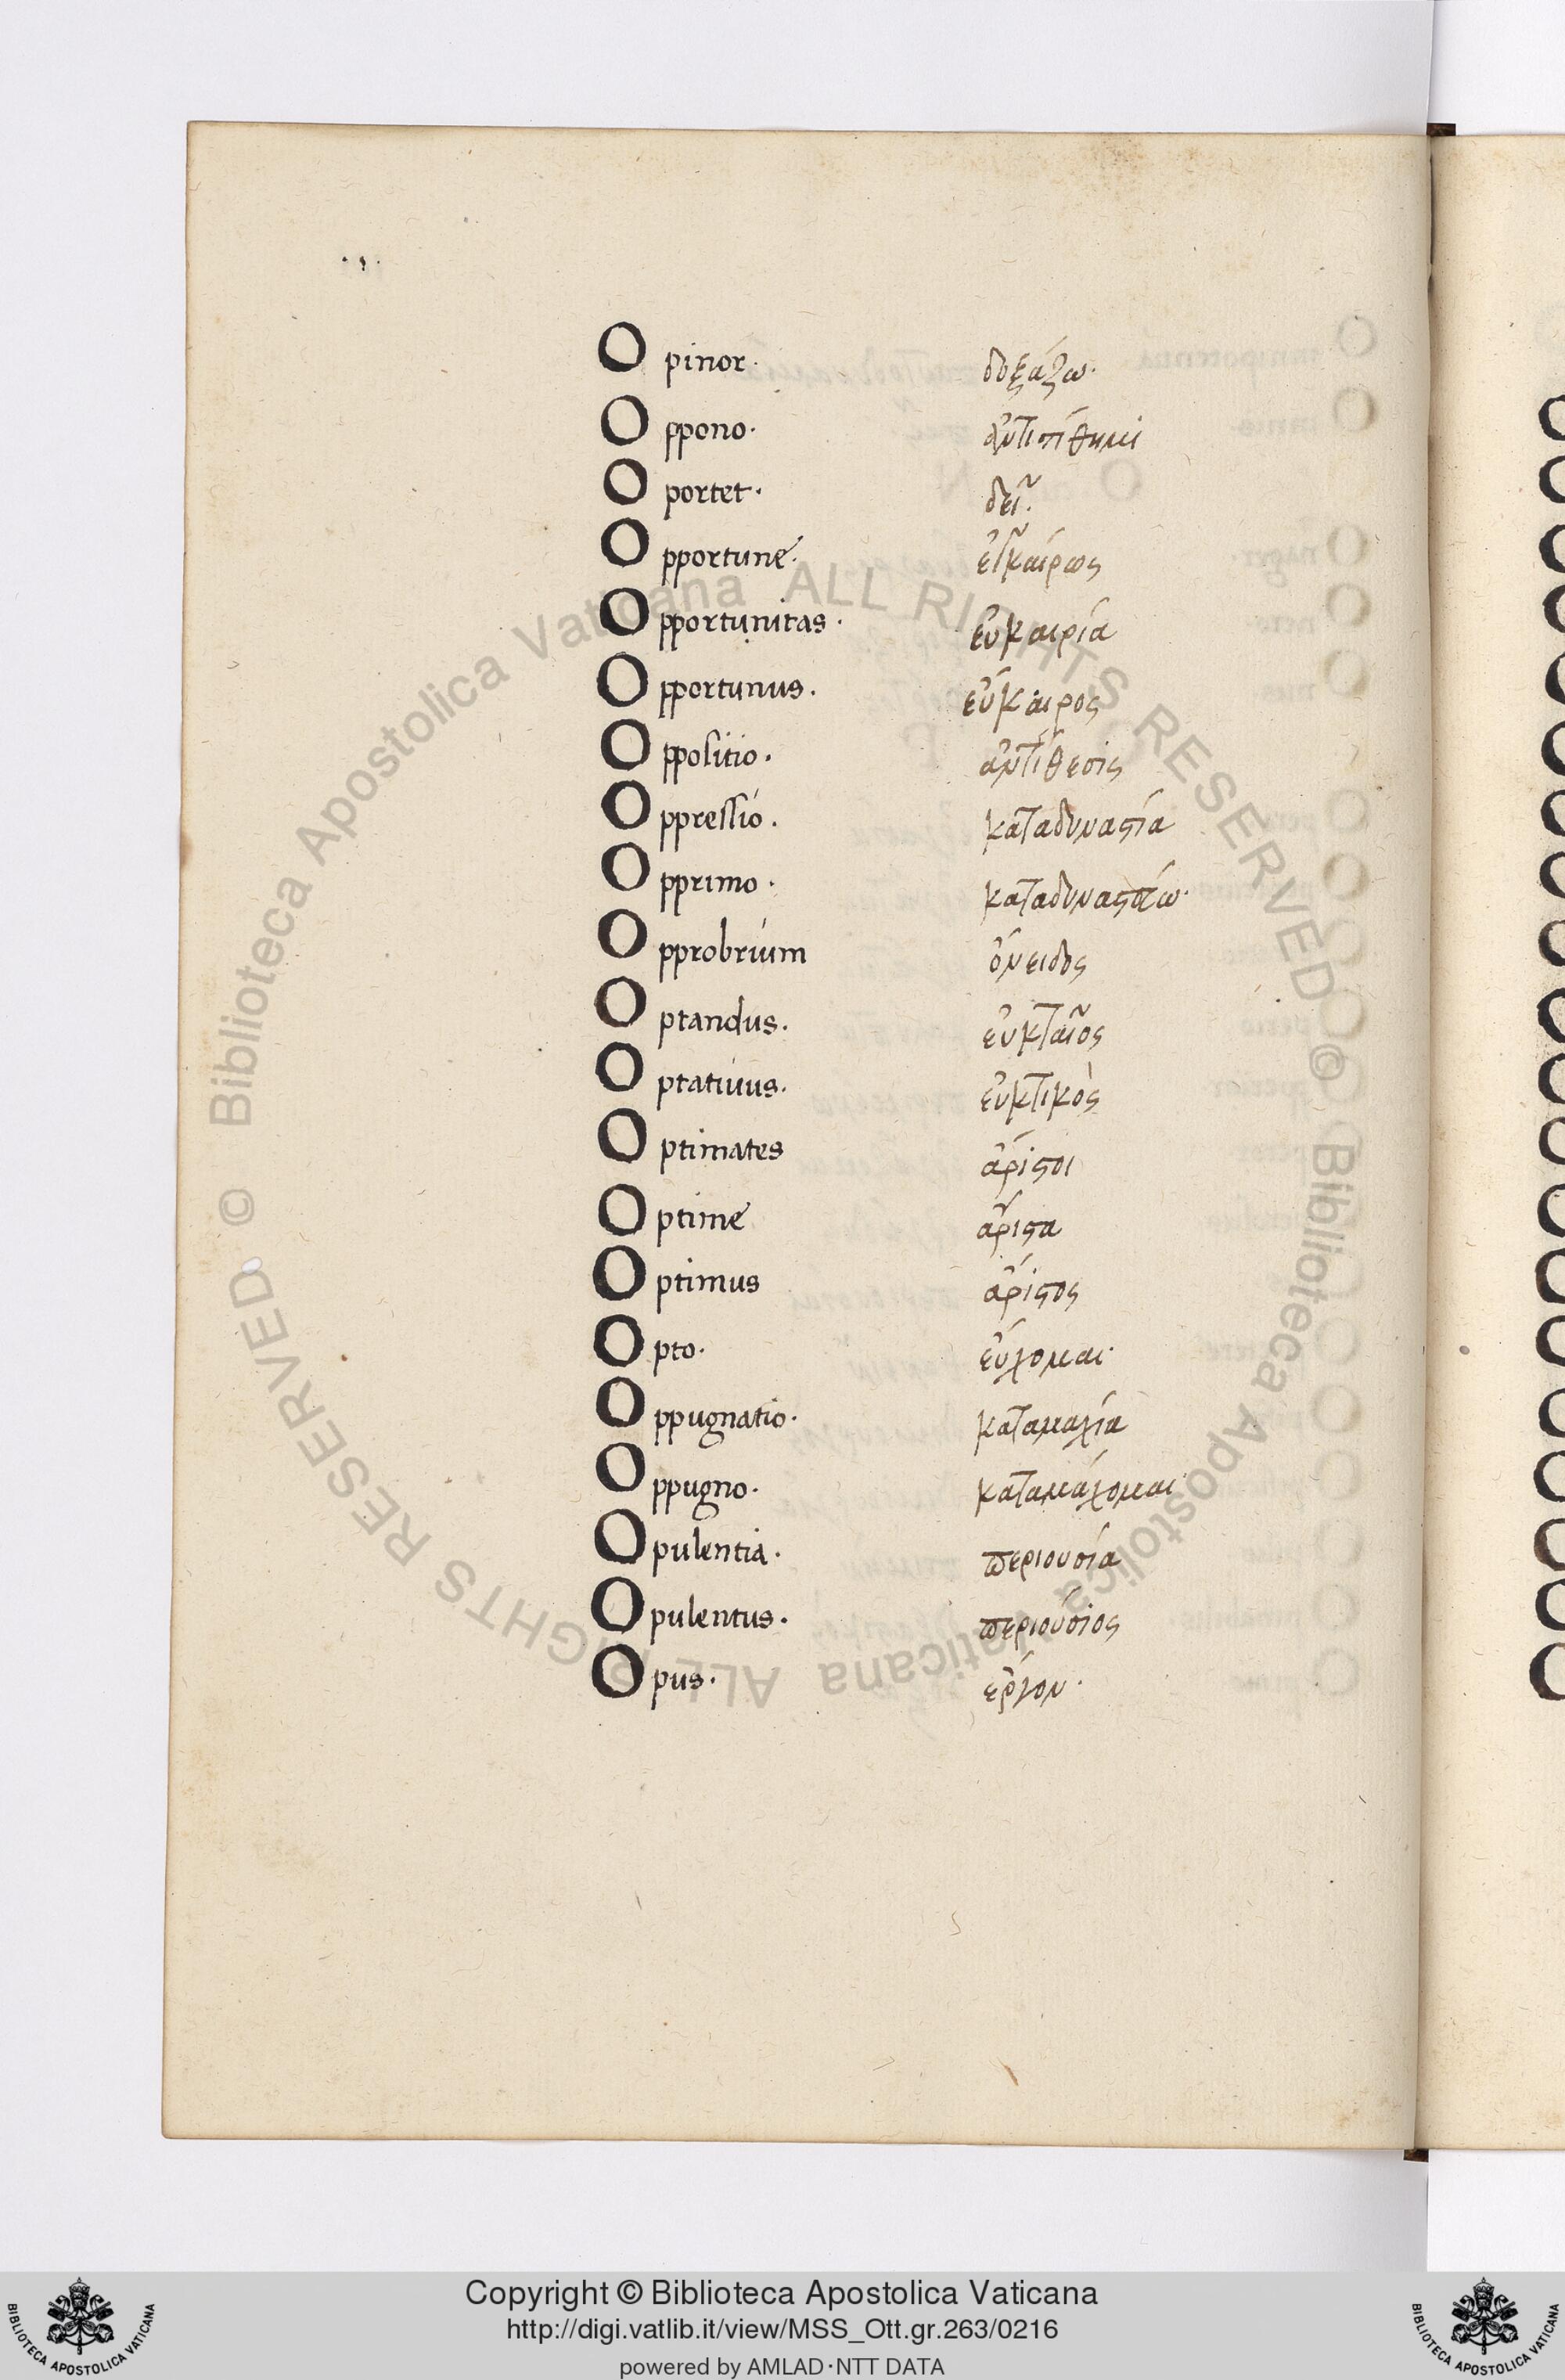 Opinor. δοξάζω.
Oppono. ἀντιτίθημι
Oportet. δεῖ.
Opportune. εὐκαίρως
Opportunitas. εὐκαιρία
Opportunus. εὔκαιρος
Oppositio. ἀντίθεσις
Oppressio. καταδυναστία
Opprimo. καταδυναστέω.
Opprobrium ὄνειδος
Optandus. εὐκταῖος
Optativus. εὐκτικὸς
Optimates ἄριστοι
Optime ἄριστα
Optimus ἄριστος
Opto. εὔχομαι
Oppugnatio. καταμαχία
Oppugno. καταμάχομαι
Opulentia. περιουσία
Opulentus. περιούσιος
Opus. ἔργον.
© Biblioteca Apostolica Vaticana ALL RIGHTS RESERVED © Biblioteca Apostolica Vaticana ALL RIGHTS RESERVED
Copyright © Biblioteca Apostolica Vaticana
http://digi.vatlib.it/view/MSS_Ott.gr.263/0216
powered by AMLAD·NTT DATA
BIBLIOTECA APOSTOLICA VATICANA
BIBLIOTECA APOSTOLICA VATICANA